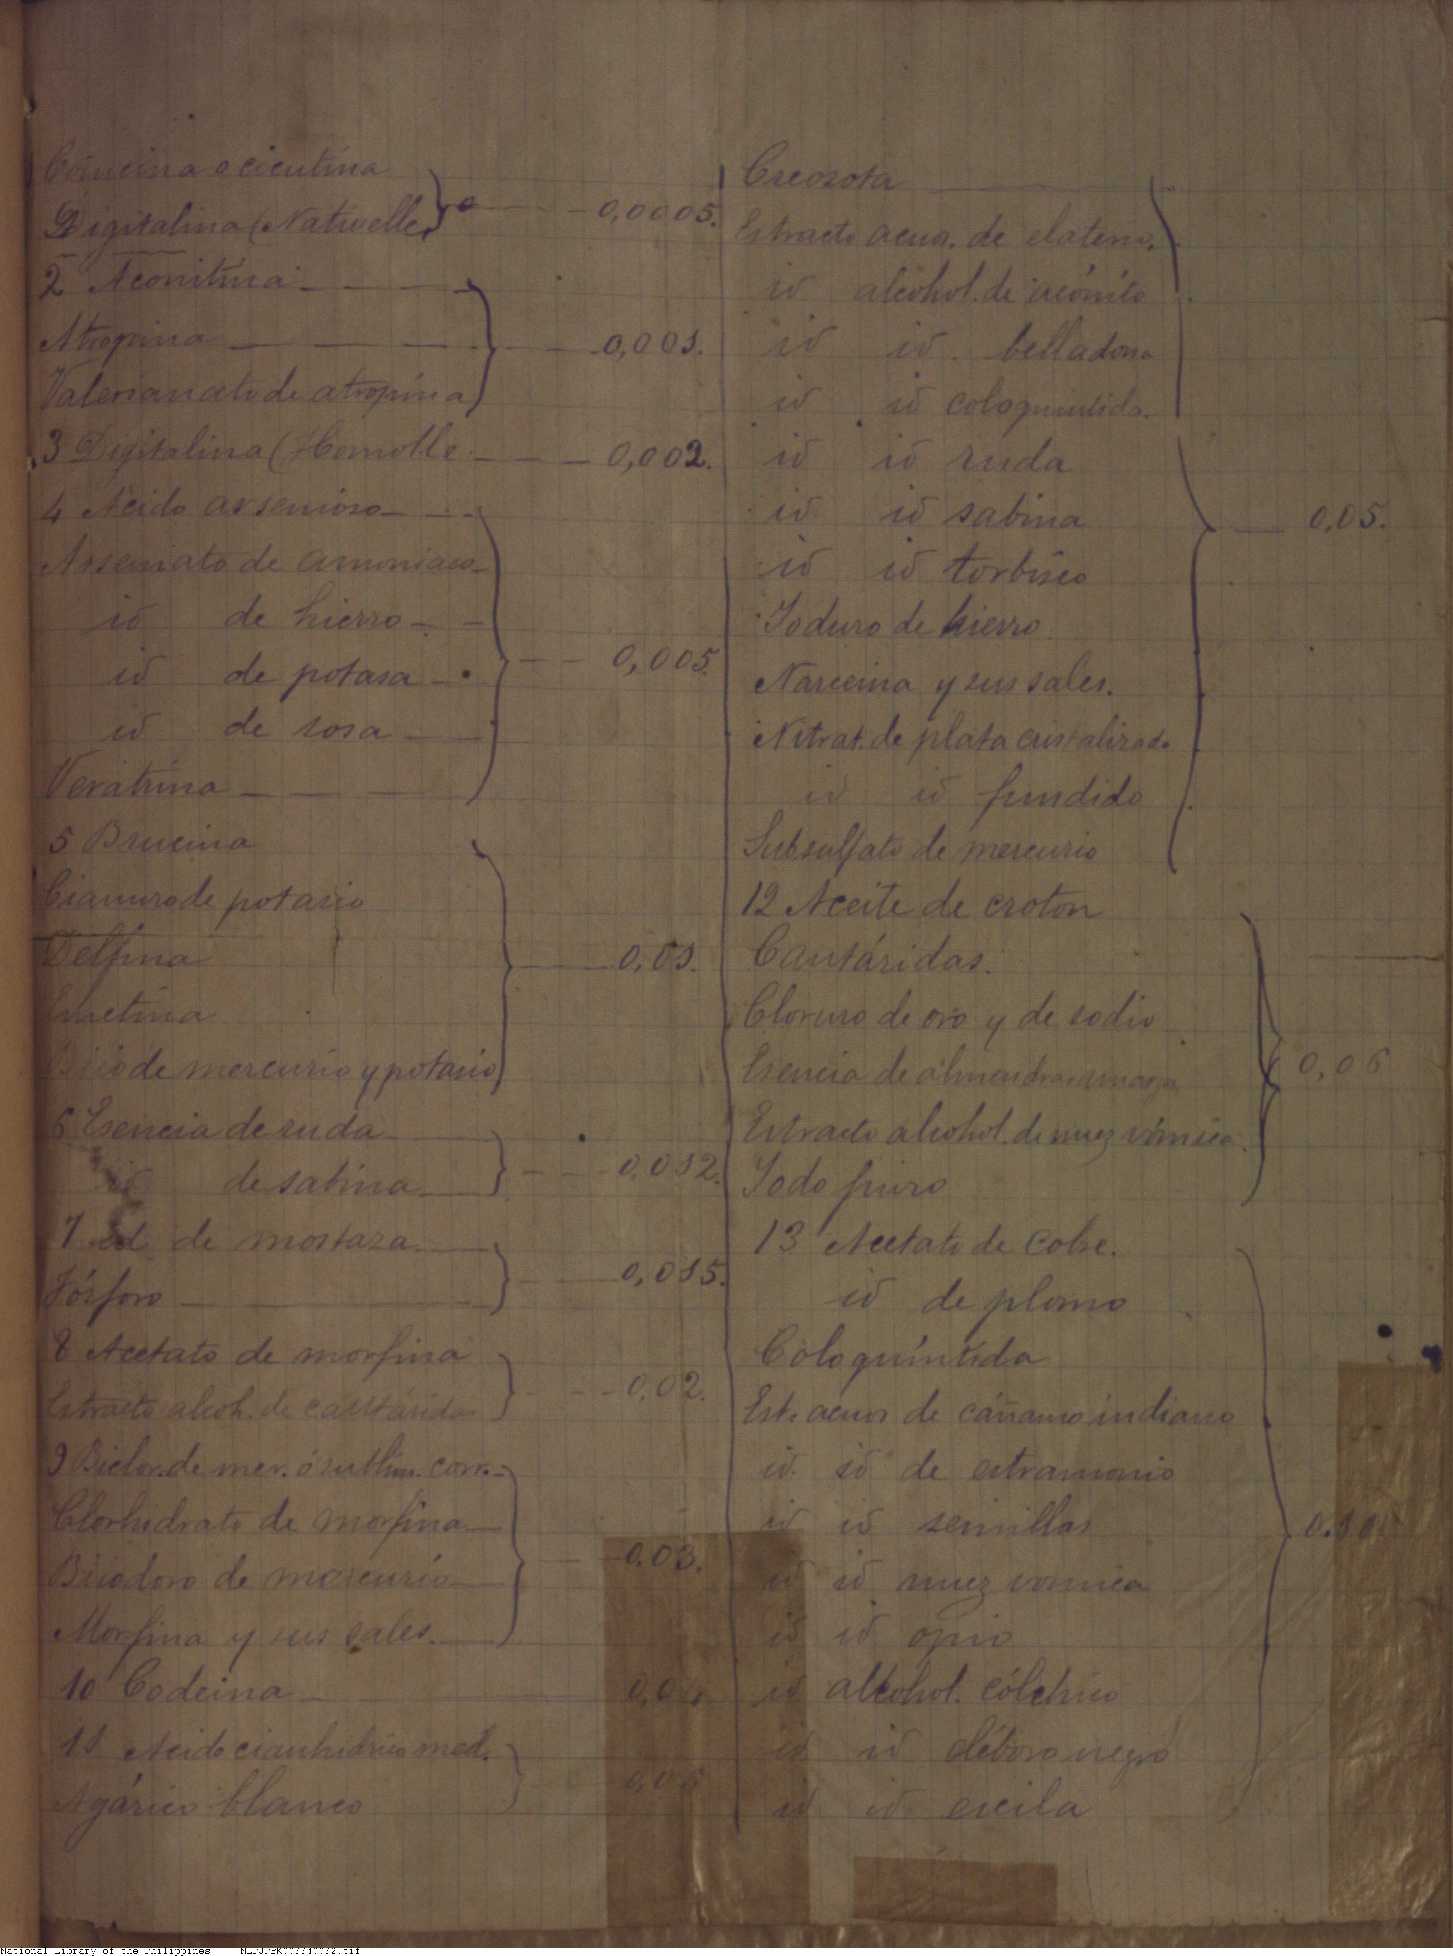 Conicina o cicutina
Digitalina (Nativelle) 0,0005.
2 Aconitina
Atropina 0,001.
Valerianato de atropina
3 Digitalina (Homolle 0,002.
4 Acido arsenioso
Arseniato de amoniaco
id de hierro
id de potasa 0,005.
id de sosa
Veratrina
5 Brucina
Cianuro de potasio
Delfina 0,01.
Emetina
de mercurio y potasio
6 Esencia de ruda
id de sabina 0,012.
7 id de mostaza
Fósforo 0,015.
8 Acetato de morfina
Estracto alcoh. de cantáridas 0,02.
9 Biclor. de mer. ó sublim. corr.
Clorhidrato de morfina
Biiodoro de mercurio 0.03.
Morfina y sus sales.
10 Codeina 0,04
11 Acido cianhidrico med.
Agárico blanco 0,05
Creosota
Estracto acuo. de elaterio.
id alcohol. de acónito
id id. belladona
id id coloquintida.
id id ruda
id id sabina 0,05.
id id torbisco
Ioduro de hierro
Narceina y sus sales.
Nitrat. de plata cristalizado
id id fundido
Subsulfato de mercurio
12 Aceite de croton
Cantáridas.
Cloruro de oro y de sodio
Esencia de almendras amargas 0,06
Estracto alcohol. de nuez vómica
Iodo puro
13 Acetato de cobre.
id de plomo
Coloquíntida
Est. acuos de cáñamo indiano
id. id de estramonio
id id semillas 0.10
id id nuez vomica
id id opio
id alcohol. cólchico
id id eléboro negro
id id escila
National Library of the Philippines